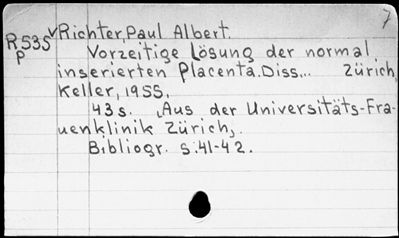 7
R535 vRichter,Paul Albert.
p Vorzeitige Lösung der normal
inserierten Placenta.Diss... Zürich,
Keller, 1955.
43s. „Aus der Universitäts-Fra-
uenklinik Zürich„.
Bibliogr. S.41-42.